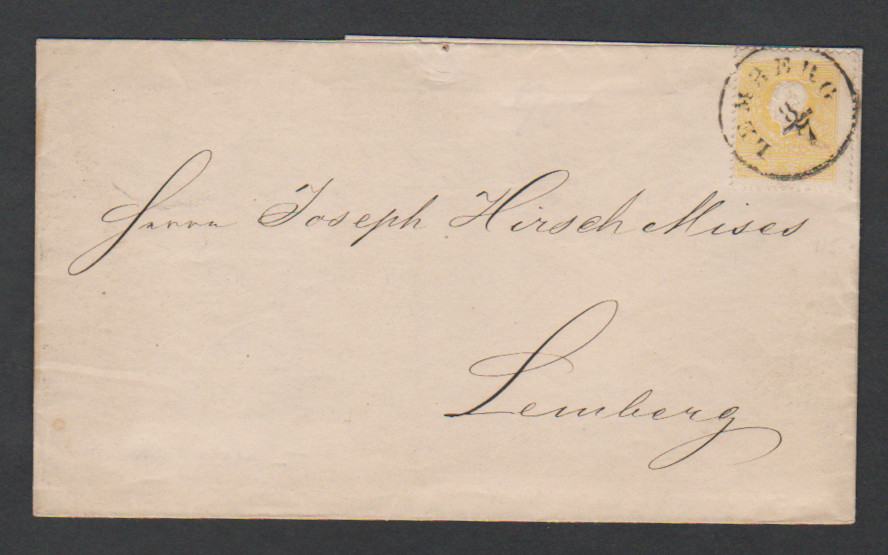 LEMBERG
Herrn Joseph Hirsch Mises
Lemberg